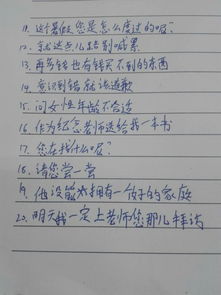 11. 这个暑假您是怎么度过的呢?
12. 就这点儿路别喊累
13. 再多钱也有钱买不到的东西
14. 意识到错就该道歉
15. 问女性年龄不合适
16. 作为纪念老师送给我一本书
17. 您在找什么呢?
18. 请您尝一尝
19. 他没能拥有一个好的家庭
20. 明天我一定上老师您那儿拜访